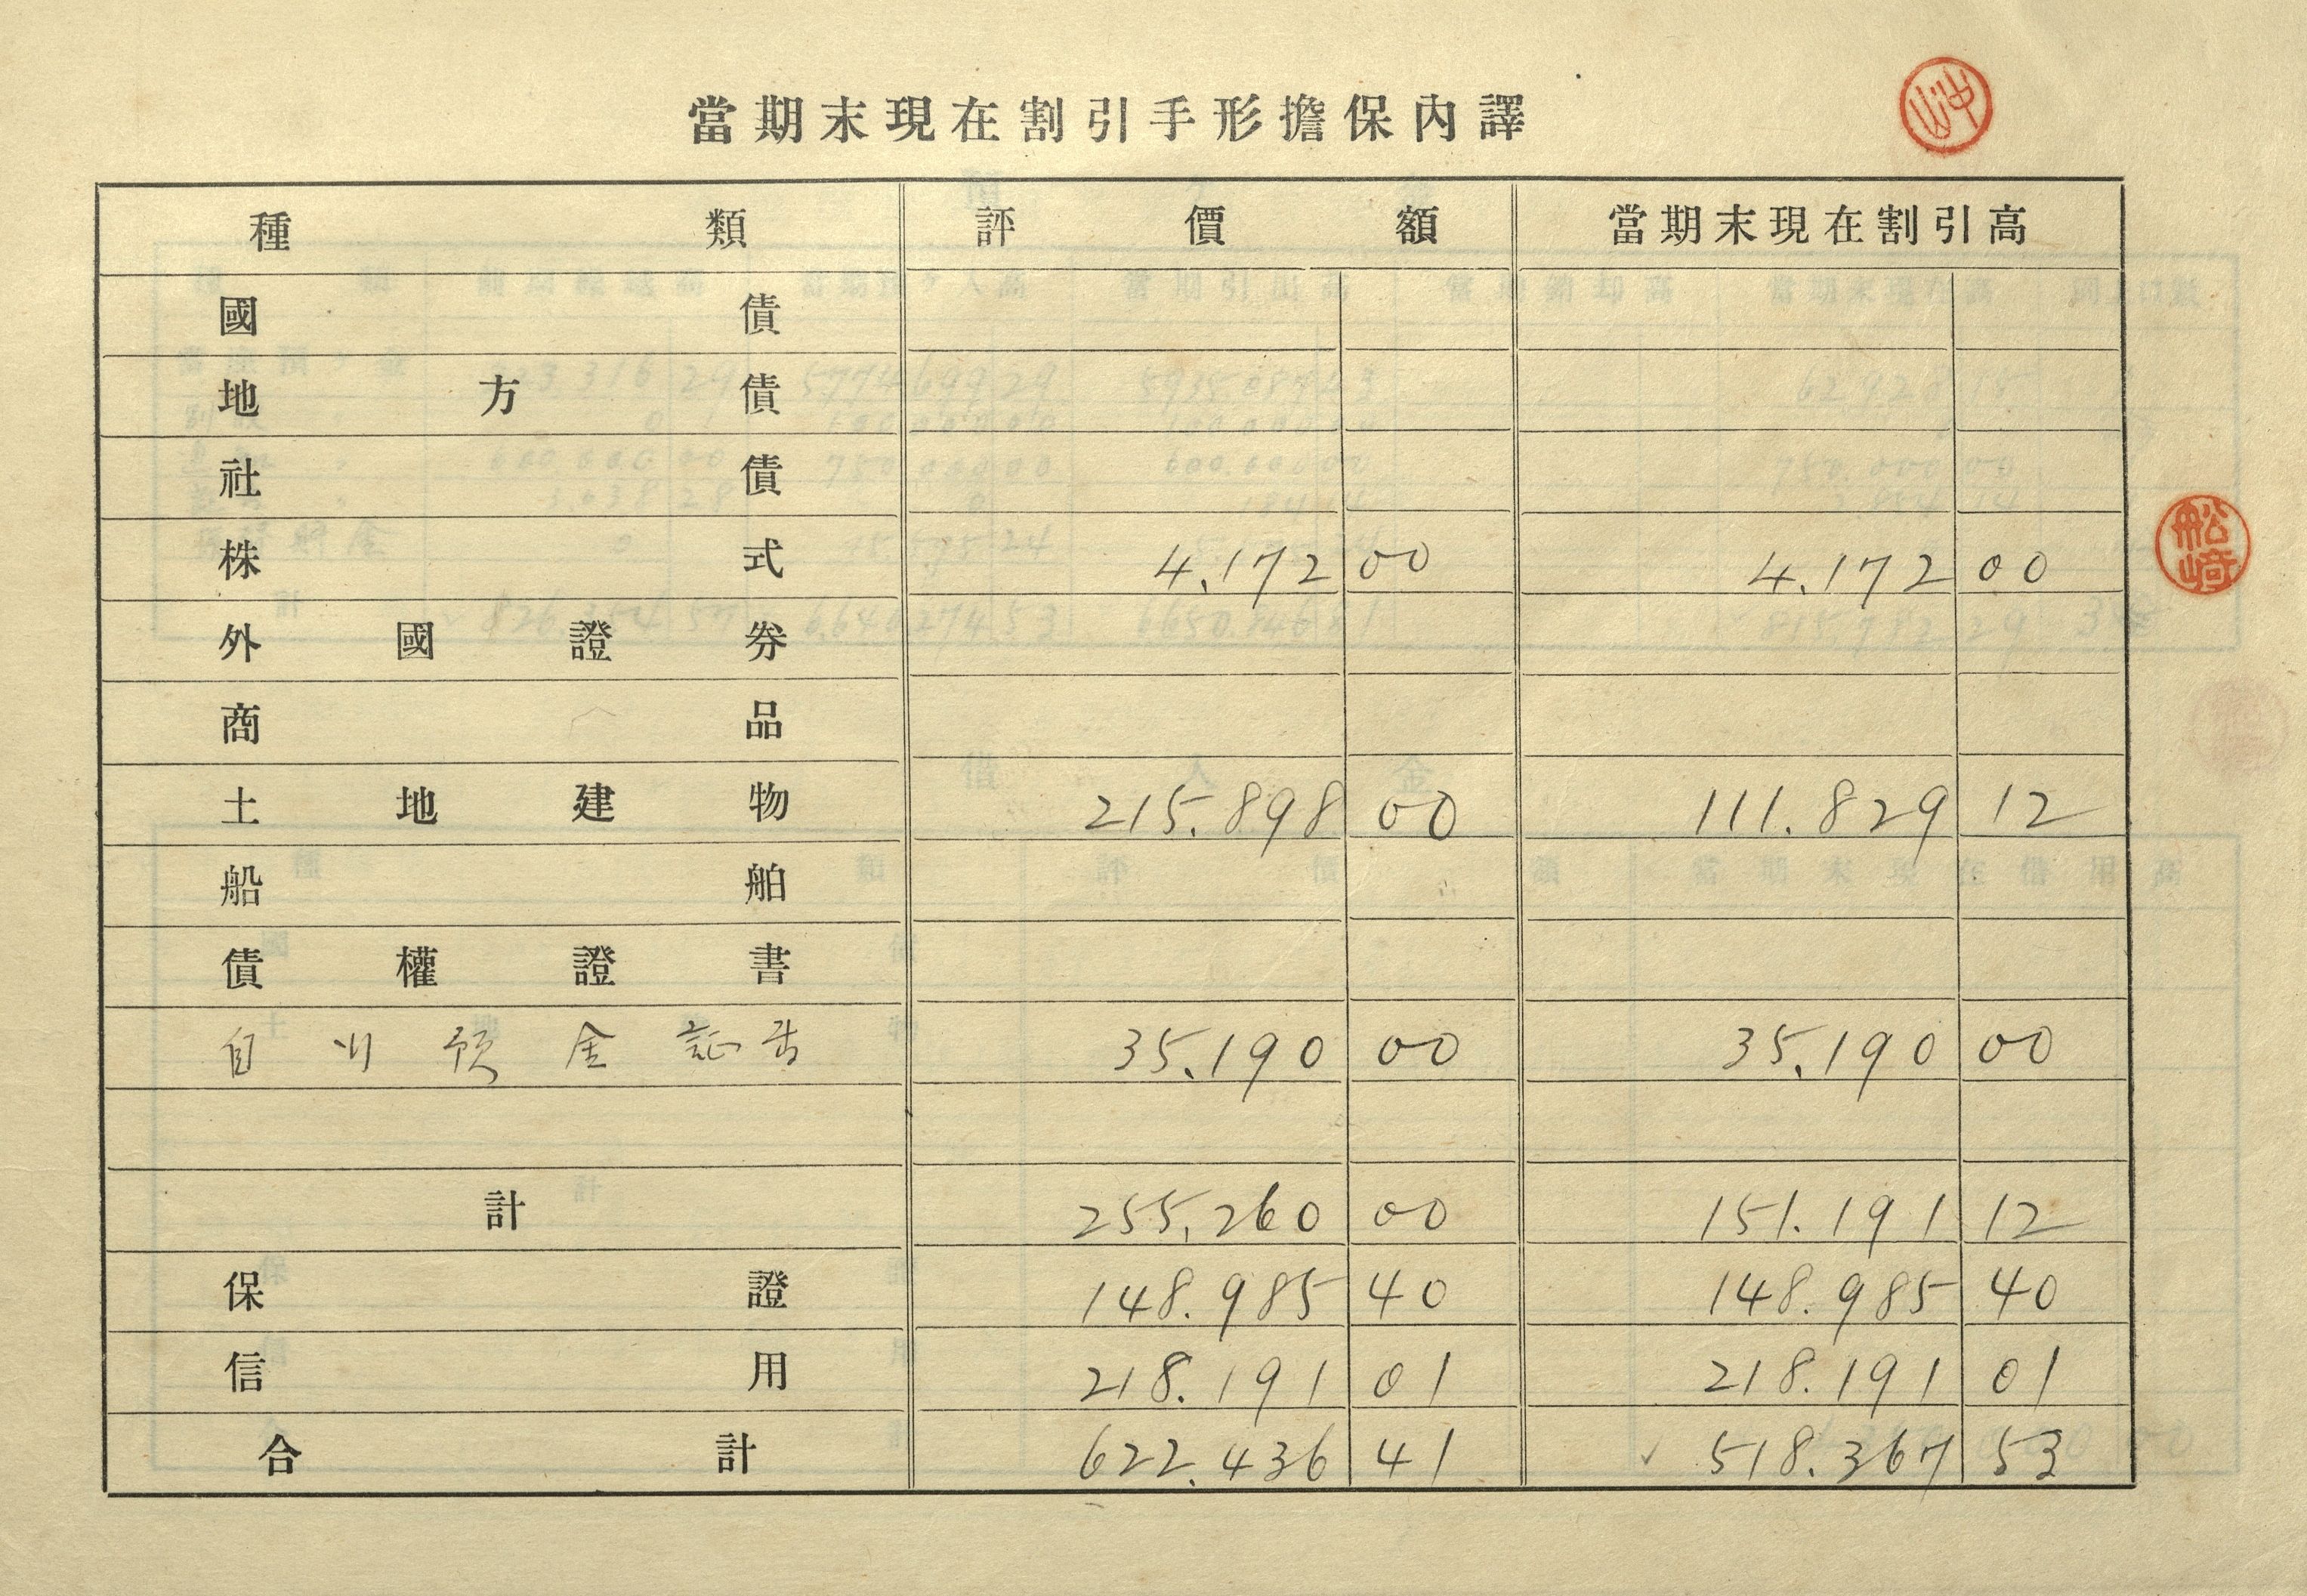 當期末現在割引手形擔保內譯
種類 評價額 當期末現在割引高
國債
地方債
社債
株式 4.172 00 4.172 00
外國證券
商品
土地建物 215.898 00 111.829 12
船舶
債權證書
自 預金証書 35.190 00 35.190 00
計 255.260 00 151.191 12
保證 148.985 40 148.985 40
信用 218.191 01 218.191 01
合計 622.436 41 518.367 53